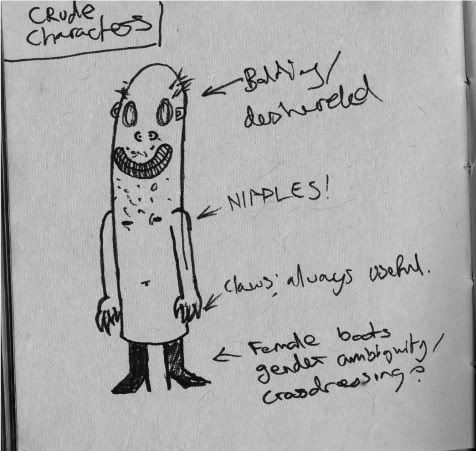 CRUDE
Characters
Balding/
NIPPLES!
claws: always useful.
Female boots
gender ambiguity/
crossdressing?